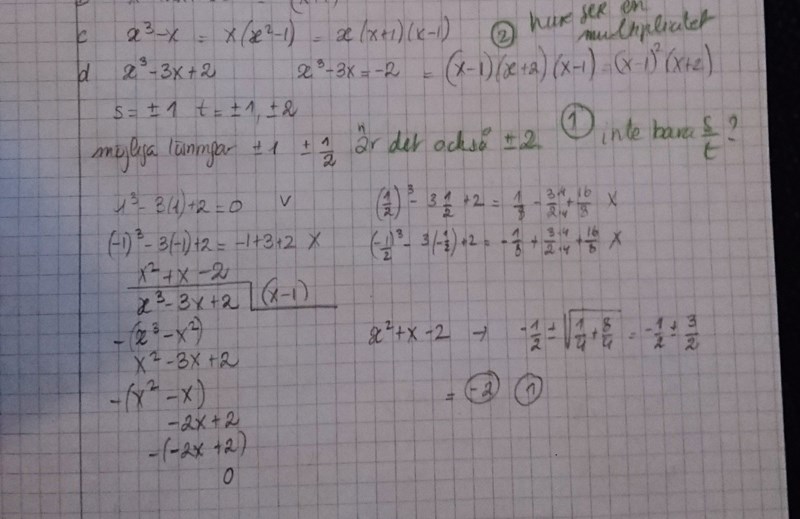 c x³-x = x(x²-1) = x(x+1)(x-1) ② hur ser en multiplicitet
d x³-3x+2 x³-3x=-2 = (x-1)(x+2)(x-1)=(x-1)²(x+2)
s=±1 t=±1,±2
möjliga lösningar ±1 ±1/2 är det också ±2 ① inte bara s/t?
1³-3(1)+2=0 v (1/2)³-3 1/2+2 = 1/8 - 3·4/2·4 + 16/8 X
(-1)³-3(-1)+2=-1+3+2 X (-1/2)³-3(-1/2)+2 = -1/8 + 3·4/2·4 + 16/8 X
x²+x-2
x³-3x+2 (x-1)
-(x³-x²) x²+x-2 → -1/2 ± √(1/4+8/4) = -1/2 ± 3/2
x²-3x+2
-(x²-x) = -2 1
-2x+2
-(-2x+2)
0